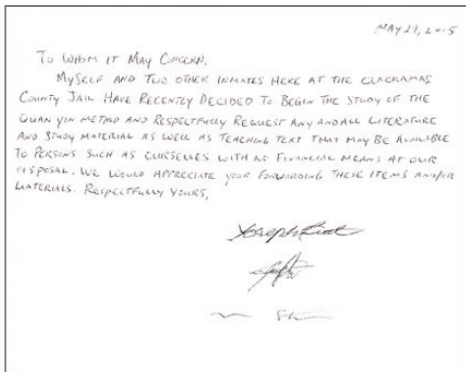 MAY 29, 2015
TO WHOM IT MAY CONCERN.
MYSELF AND TWO OTHER INMATES HERE AT THE CLACKAMAS
COUNTY JAIL HAVE RECENTLY DECIDED TO BEGIN THE STUDY OF THE
QUAN YIN METHOD AND RESPECTFULLY REQUEST ANY AND ALL LITERATURE
AND STUDY MATERIAL AS WELL AS TEACHING TEXT THAT MAY BE AVAILABLE
TO PERSONS SUCH AS OURSELVES WITH NO FINANCIAL MEANS AT OUR
DISPOSAL. WE WOULD APPRECIATE YOUR FORWARDING THESE ITEMS AND/OR
MATERIALS. RESPECTFULLY YOURS,
Joseph